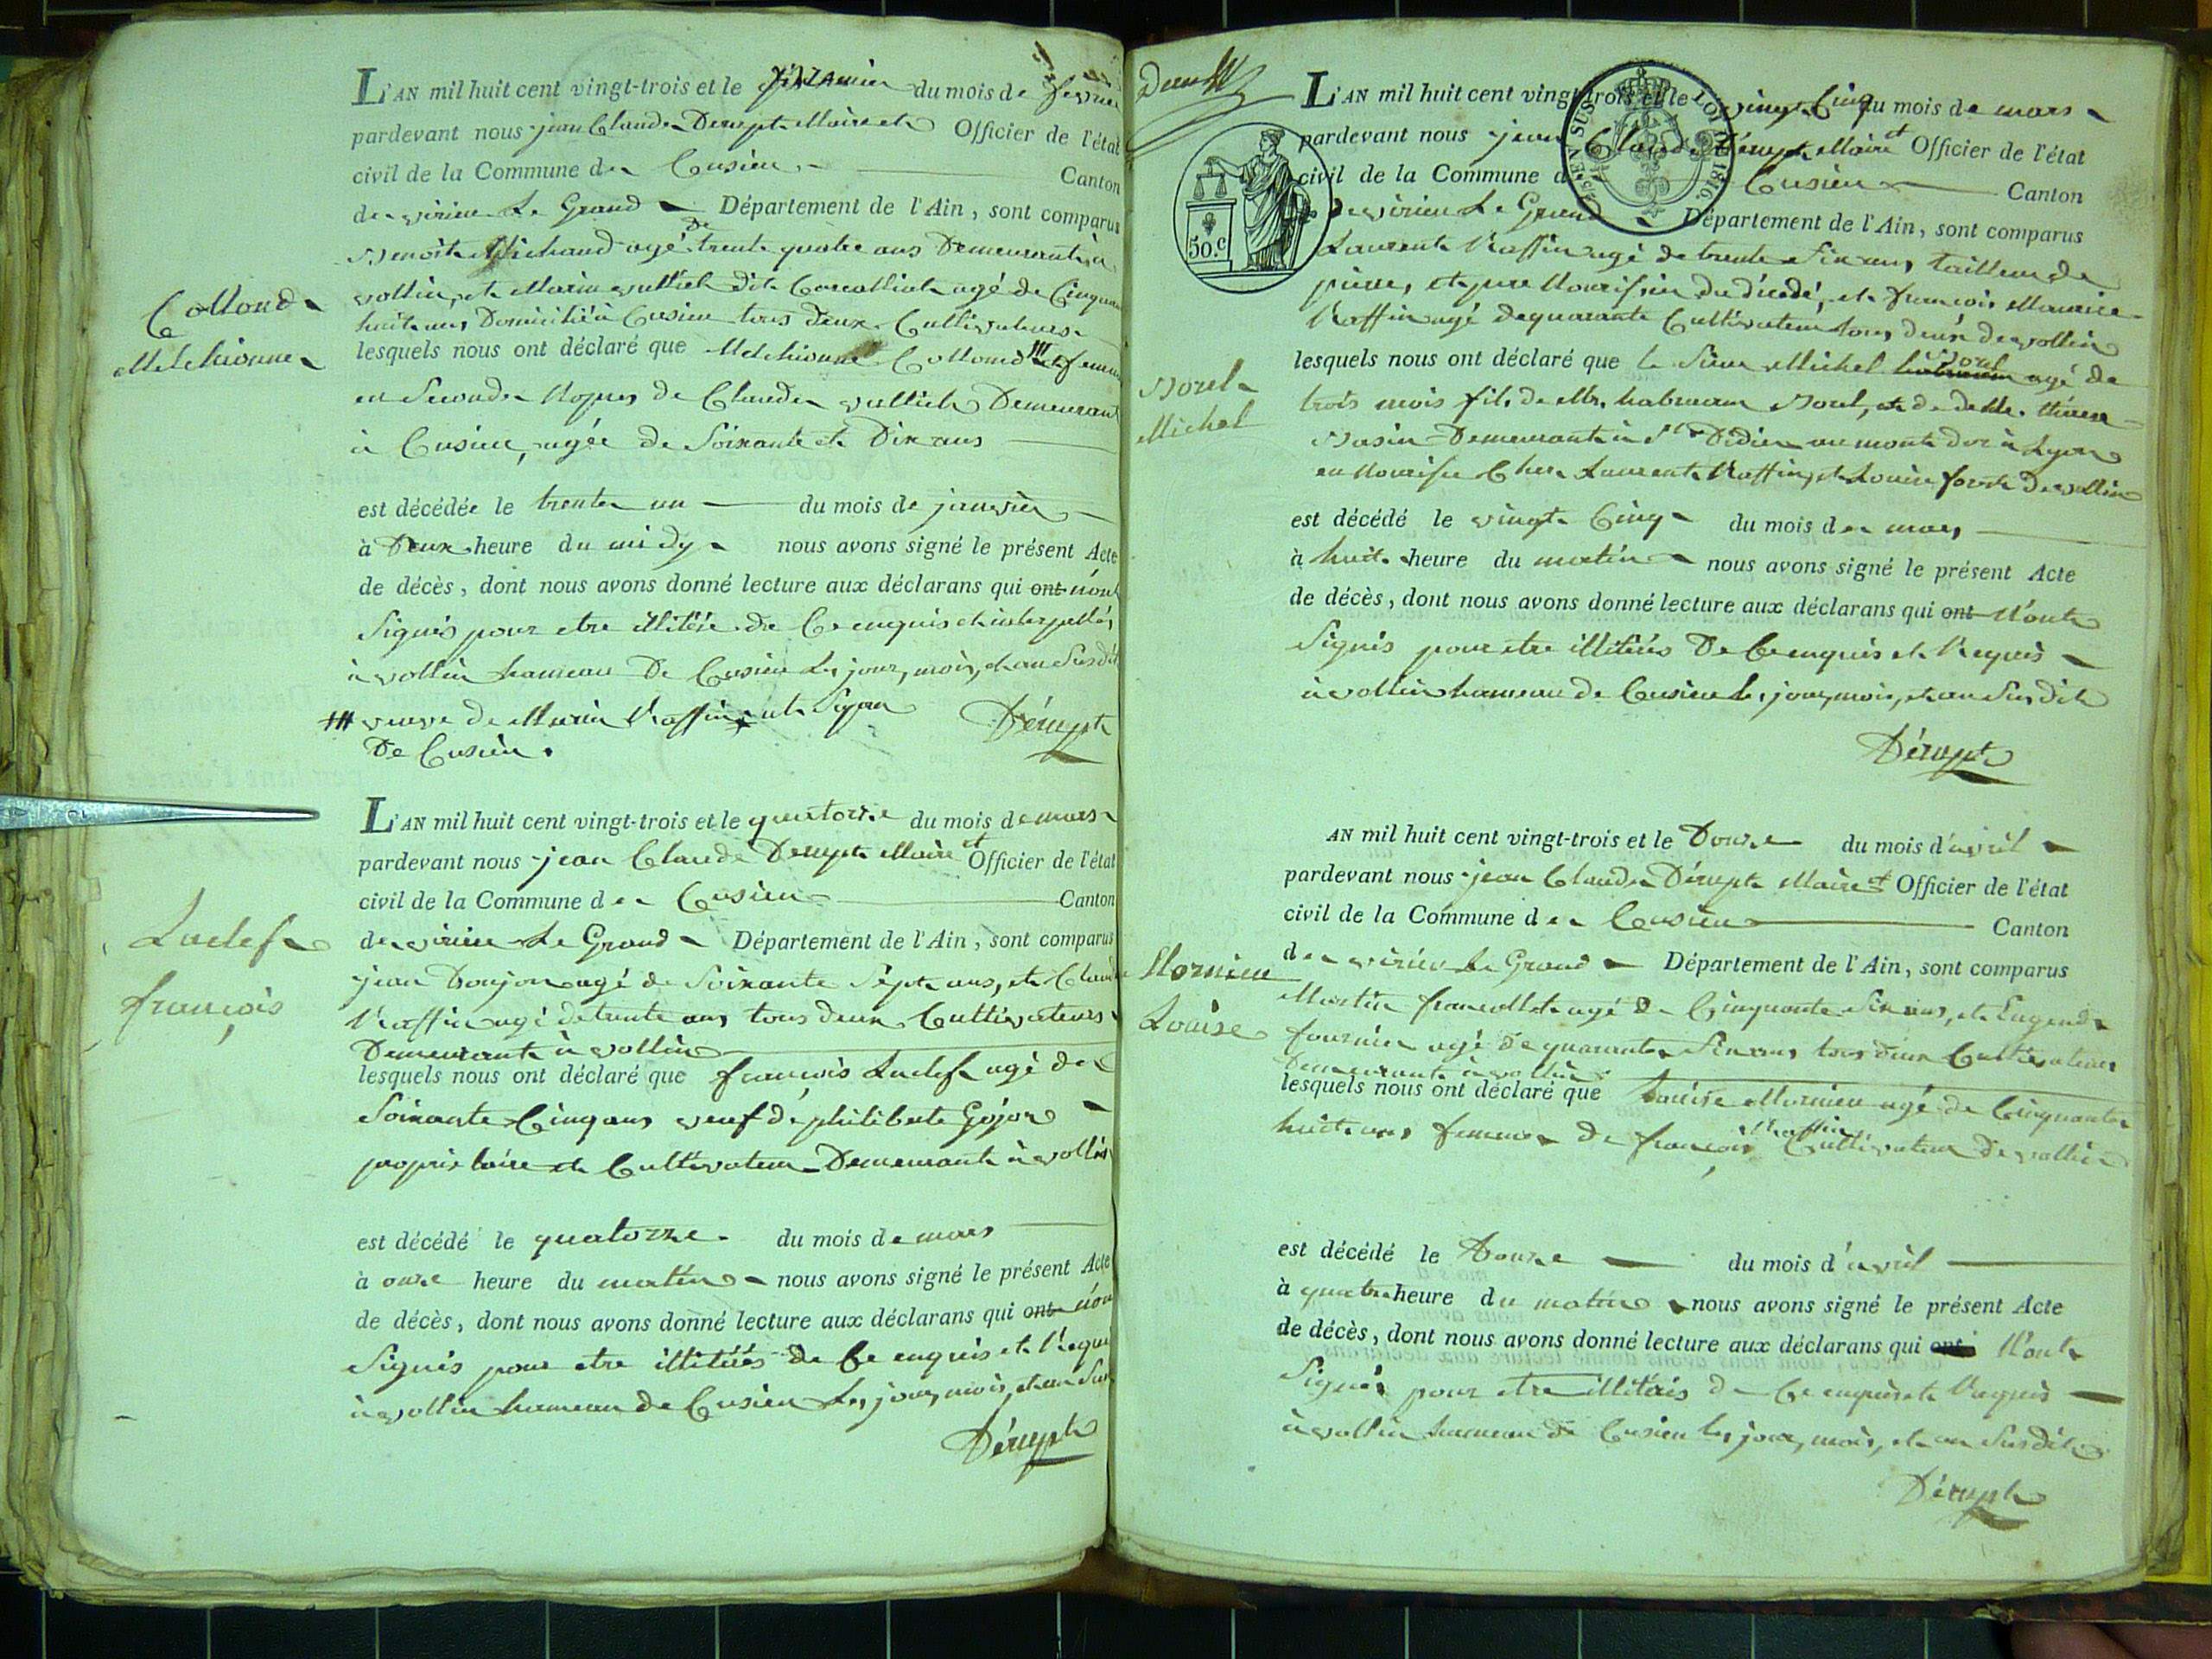 L'AN mil huit cent vingt-trois et le premier du mois de fevrier
pardevant nous jean Claude Derupt Maire et Officier de l'état
civil de la Commune de Cusieu Canton
de virieu Le Grand Département de l'Ain, sont comparus
Benoit Michaud agé de trente quatre ans Demeurant à
vollin, et Marin vullich dit agé de Cinquante
huit ans, Domicilié à Cusieu tous deux Cultivateurs
Collond
Melchionne
lesquels nous ont déclaré que Melchionne Collond # femme
en Secondes Nopces de Claude vullich Demeurant
à Cusieu, agée de Soixante et Dix ans
est décédée le trente un du mois de janvier
à Deux heure du midy nous avons signé le présent Acte
de décès, dont nous avons donné lecture aux déclarans qui ont n'ont
Signés pour etre illitéré de Ce enquis et interpellés
à vollin hameau De Cusieu Les jour, mois, et an Susdit
# veuve de Marin Raffin
De Cusieu.
Dérupt
L'AN mil huit cent vingt-trois et le quatorze du mois de mars
pardevant nous jean Claude Derupt Maire et Officier de l'état
civil de la Commune de Cusieu Canton
de virieu Le Grand Département de l'Ain, sont comparus
jean Donjon agé de Soixante Sept ans, et Claude
Raffin agé de trente ans tous deux Cultivateurs
Demeurant à vollin
Luclef
françois
lesquels nous ont déclaré que françois Luclef agé de
Soixante Cinq ans veuf de philiberte Gojon
propriétaire et Cultivateur Demeurant à vollin
est décédé le quatorze du mois de mars
à onze heure du matin nous avons signé le présent Acte
de décès, dont nous avons donné lecture aux déclarans qui ont n'ont
Signés pour etre illitérés de Ce enquis et Requis
à vollin hameau de Cusieu Les jour, mois, et an Sus
Dérupt
L'AN mil huit cent vingt-trois et le vingt Cinq du mois de mars
pardevant nous jean Claude Dérupt Maire et Officier de l'état
civil de la Commune de Cusieu Canton
de virieu Le Grand Département de l'Ain, sont comparus
50.c
LOI DE 1816.
Laurent Raffin agé de trente Six ans, tailleur de
pierre, et pere Nourisier du décédé, et françois Maurice
Raffin agé de quarante Cultivateur tous deux de vollin
Borel
Michel
lesquels nous ont déclaré que le Sieur Michel Borel agé de
trois mois fils de Mr. habraam Borel, et de
Demeurant à St Didier au mont dor à Lyon
en Nourise Chez Laurent Raffin, et Louise de vollin
est décédé le vingt Cinq du mois de mars
à huit heure du matin nous avons signé le présent Acte
de décès, dont nous avons donné lecture aux déclarans qui ont N'ont
Signés pour etre illitérés De Ce enquis et Requis
à vollin hameau de Cusieu les jour, mois, et an Susdit
Dérupt
AN mil huit cent vingt-trois et le Douze du mois d'avril
pardevant nous jean Claude Dérupt Maire et Officier de l'état
civil de la Commune de Cusieu Canton
de virieu Le Grand Département de l'Ain, sont comparus
Mornieu
Louise
Martin francollet agé de Cinquante Six ans, et Eugend
fournier agé de quarante Six ans tous deux Cultivateurs
Demeurant à vollin
lesquels nous ont déclaré que Louise Mornieu agé de Cinquante
huit ans femme de françois Raffin Cultivateur de vollin
est décédé le Douze du mois d'avril
à quatre heure du matin nous avons signé le présent Acte
de décès, dont nous avons donné lecture aux déclarans qui ont N'ont
Signés pour etre illitérés de Ce enquis et Requis
à vollin hameau de Cusieu les jour, mois, et an Susdit
Dérupt